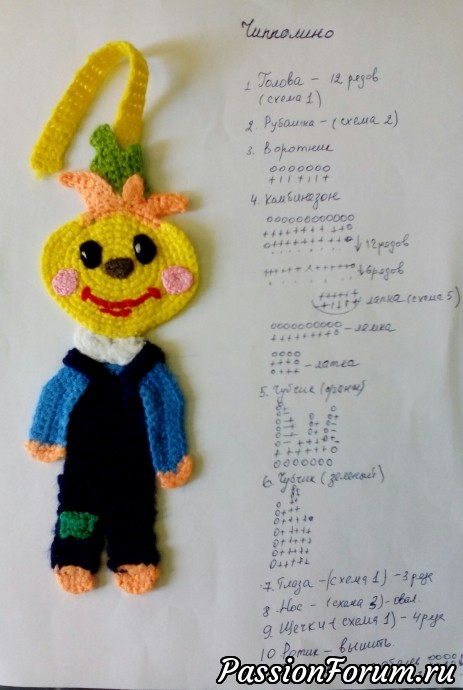 Чипполино
1. Голова - 12 рядов
(схема 1)
2. Рубашка - (схема 2)
3. Воротник
4. Комбинезон
12 рядов
6 рядов
лапка (схема 5)
- лямка
- латка
5. Чубчик (оранж)
6. Чубчик (зеленый)
7. Глаза - (схема 1) - 3 ряда
8. Нос - (схема 3) - овал
9. Щечки (схема 1) - 4 ряда
10. Ротик - вышить
PassionForum.ru